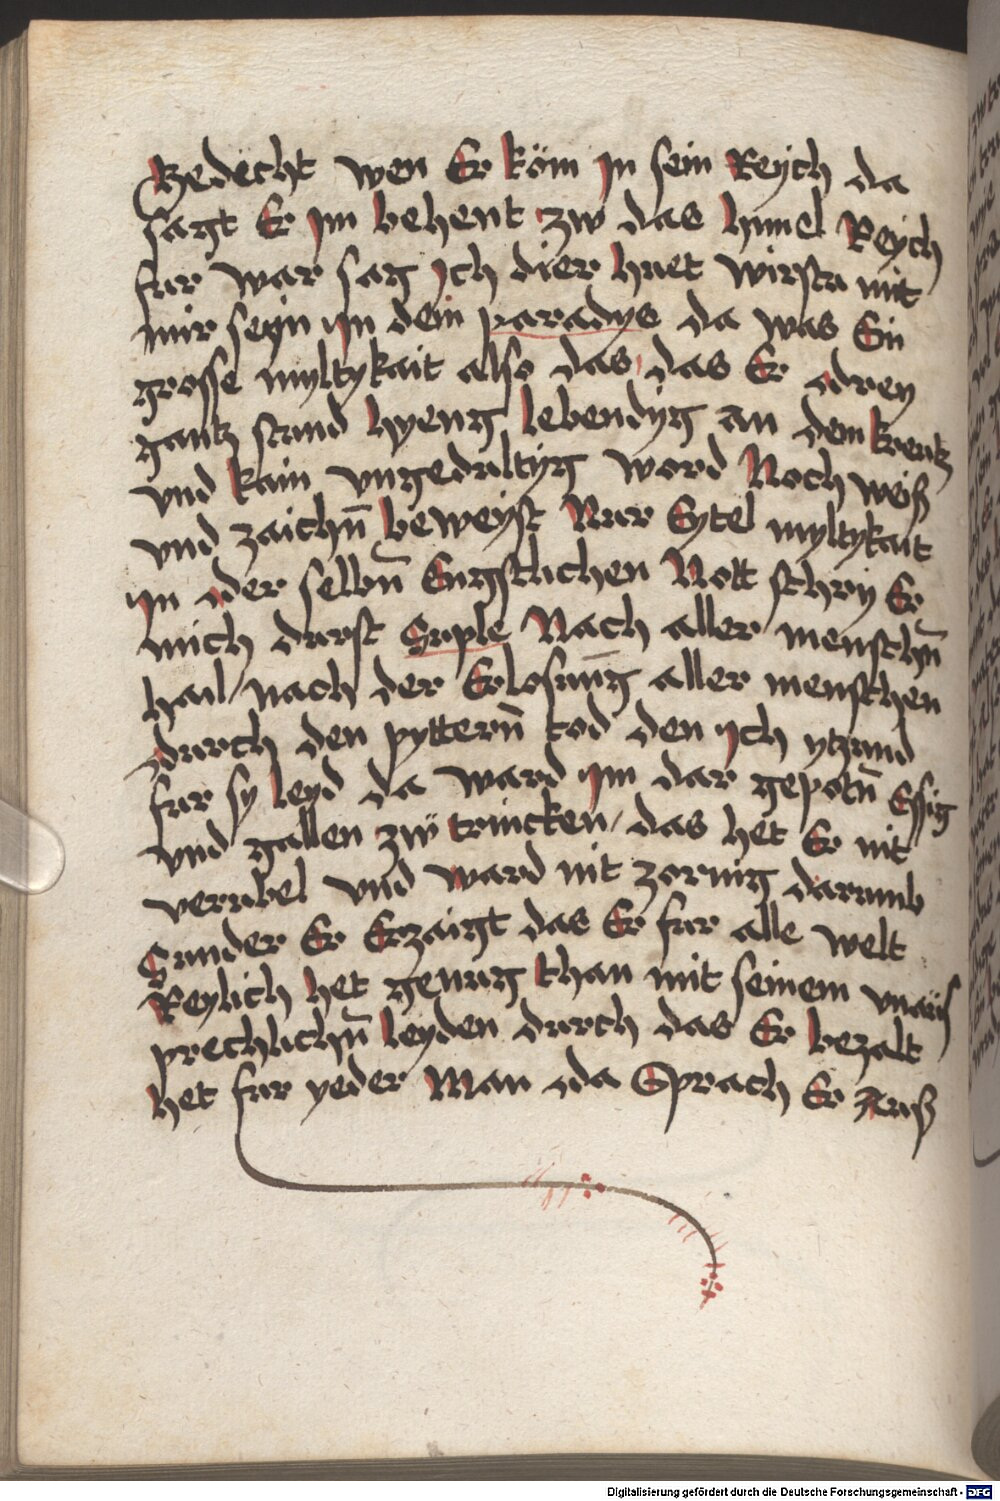 Gedëcht wen Er köm jn sein Reÿch da
sagt Er jm behent zw das himel Reych
fur war sag jch dier huet wirstu mit
mir seÿn jn dem paradys da was Ein
grosse myltykait also das das Er drey
gantz stund hyeng lebendÿg an dem kreutz
vnd kain vngedultÿg word Noch weiß
vnd zaichn̄ beweyst Nur Eytel myltykait
jn der selbn̄ Engstlichen Nott schrÿ Er
mich durst Suple Nach aller menschn̄
hail / nach der Erlosūng aller menschen
durch den pyttern̄ tod den jch ytzund
fur sy leyd da ward jm dar gepotn̄ Essig
vnd gallen zẅ trincken / das het Er nit
verubel vnd ward nit zornig darumb
Sunder Er Erzaigt das Er fur alle welt
Reylich het genug than mit seinem vnauß
prechlichn̄ leyden durch das Er bezalt
het fur yeder Man da Sprach Er auß
Digitalisierung gefördert durch die Deutsche Forschungsgemeinschaft - DFG